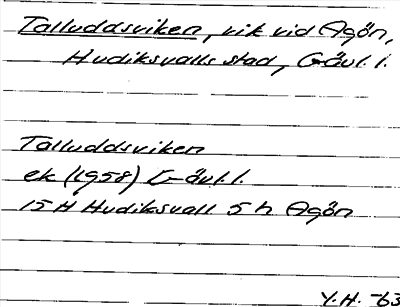 Talluddsviken, vik vid Agön,
Hudiksvalls stad, Gävl. l.
Talluddsviken
ek (1958) Gävl. l.
15H Hudiksvall 5h Agön
Y.H. -63